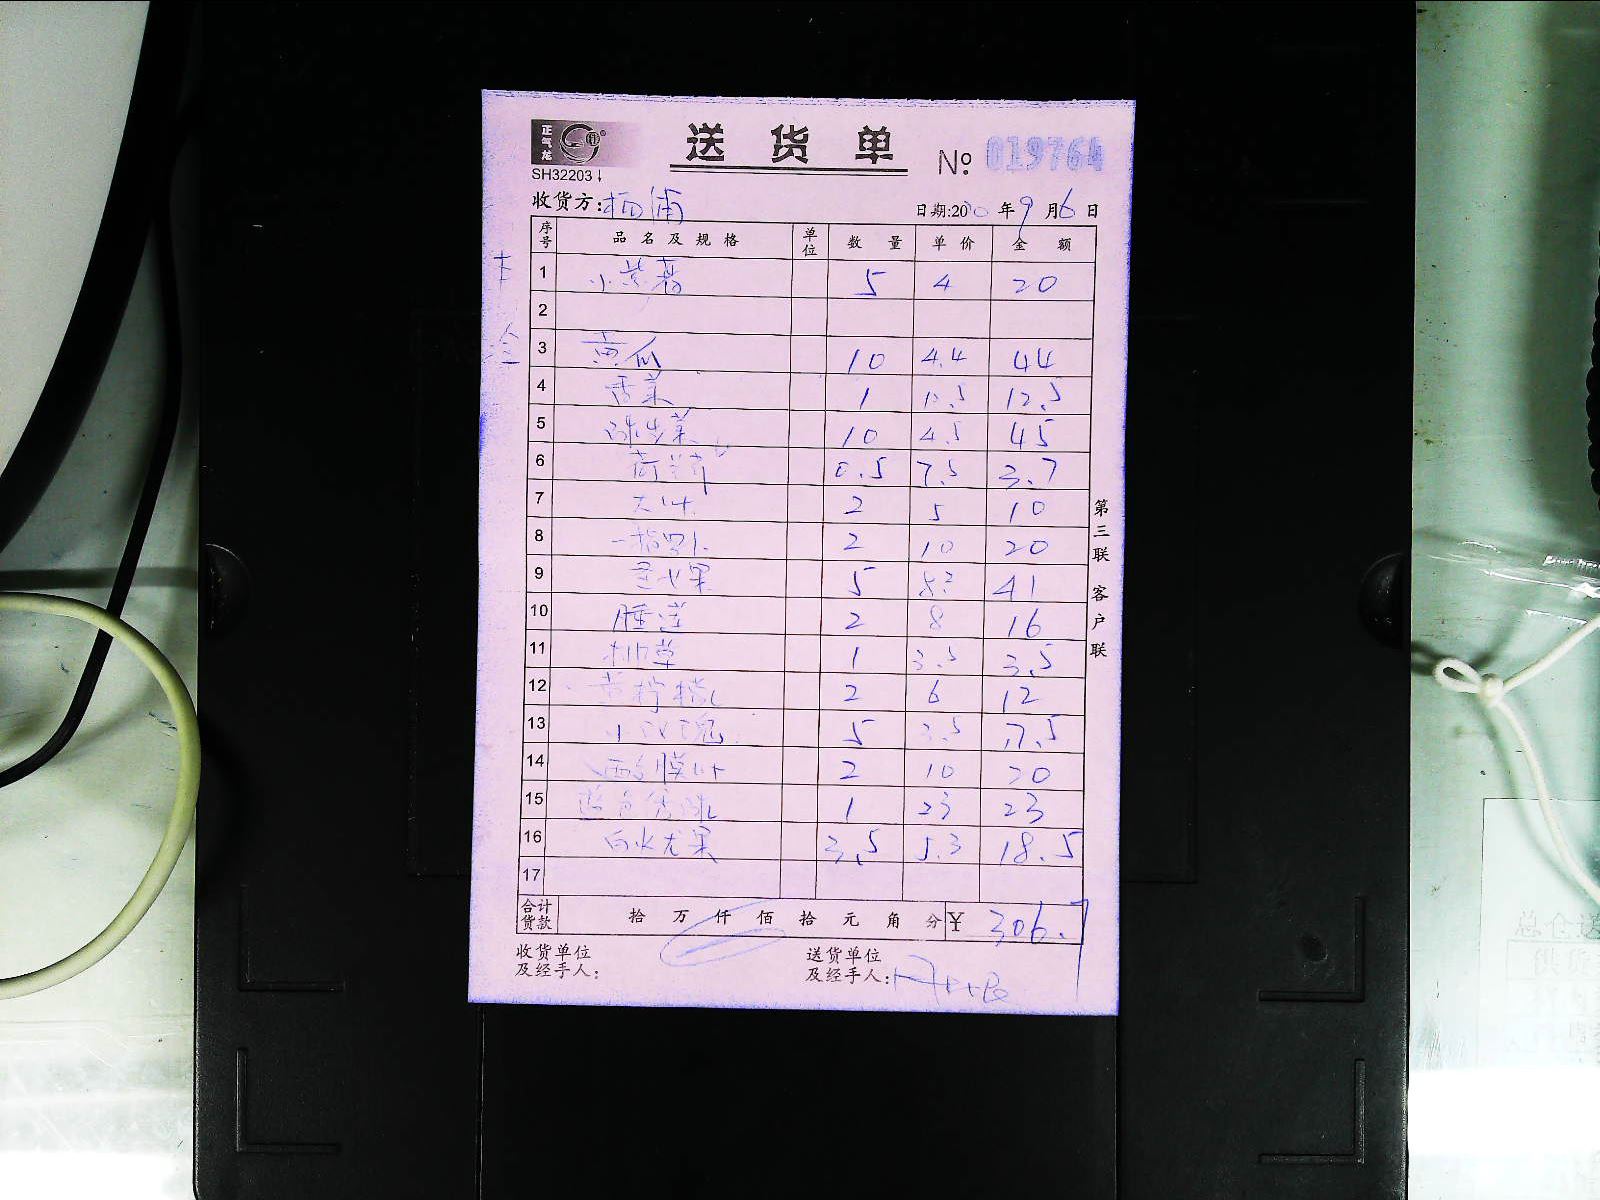 正气龙
送货单
SH32203
No. 019764
收货方: 杨浦
日期:20 年9月6日
序号 品名及规格 单位 数量 单价 金额
1 小紫薯 5 4 20
2
3 黄瓜 10 4.4 44
4 香菜 1 12.5 12.5
5 球生菜 10 4.5 45
6 荷兰芹 0.5 7.5 3.7
7 大叶 2 5 10
8 一指罗卜 2 10 20
9 火果 5 8.2 41
10 睡莲 2 8 16
11 草 1 3.5 3.5
12 黄柠檬 2 6 12
13 小玫瑰 5 3.5 17.5
14 2 10 20
15 蓝色 1 23 23
16 白火龙果 3.5 5.3 18.5
17
合计货款 拾 万 仟 佰 拾 元 角 分 ¥ 306.7
收货单位及经手人:
送货单位及经手人:
第三联 客户联